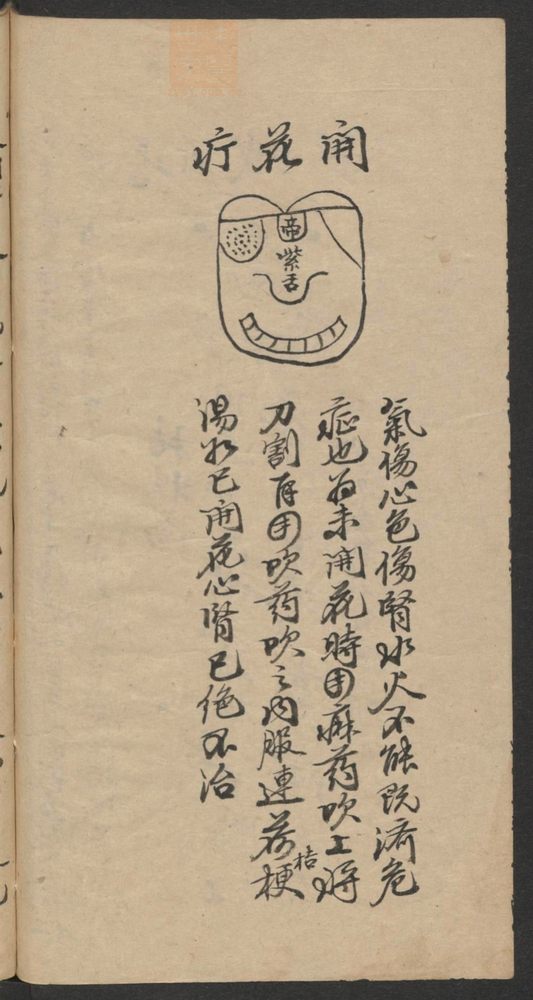 開花疔
帝
紫舌
氣傷心色傷腎水火不能既濟危
症也若未開花時用麻药吹上将
刀割再用吹药吹之内服連荷桔梗
湯如已開花心腎已绝不治